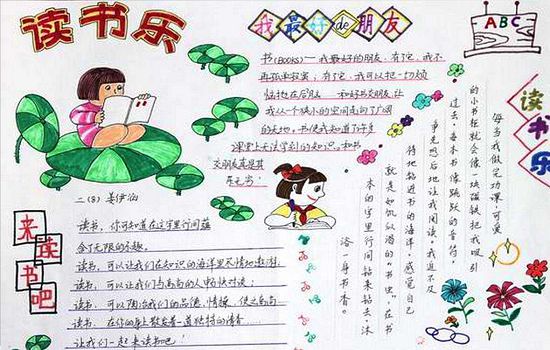 读书乐
我最好de朋友
书(BOOKS)——我最好的朋友,有了它,我不
再孤单寂寞;有了它,我可以把一切烦
恼抛在后脑
我从一个狭小的空间走向了广阔
的天地。书使我知道了许多
课堂上无法学到的知识。和书
交朋友真是其
乐无穷!
ABC
读书乐
每当我做完功课,可爱
的小书柜就会像一块磁铁把我吸引
过去。每本书像跳跃的音符,
争先恐后地让我阅读。我迫不及
待地钻进书的海洋,感觉自己
就是如饥似渴的“书虫”,在书
本的字里行间钻来钻去,沐
浴一身书香。
二(8) 姜伊泊
来读书吧
读书,你可知道在这字里行间蕴
含了无限的乐趣。
读书,可以让我们在知识的海洋里尽情地遨游。
读书,可以让我们与高尚的人畅快对谈;
读书,可以陶冶我们的品德、情操,使之高尚
读书,在你的身上散发着一道独特的清香……
让我们一起来读书吧!